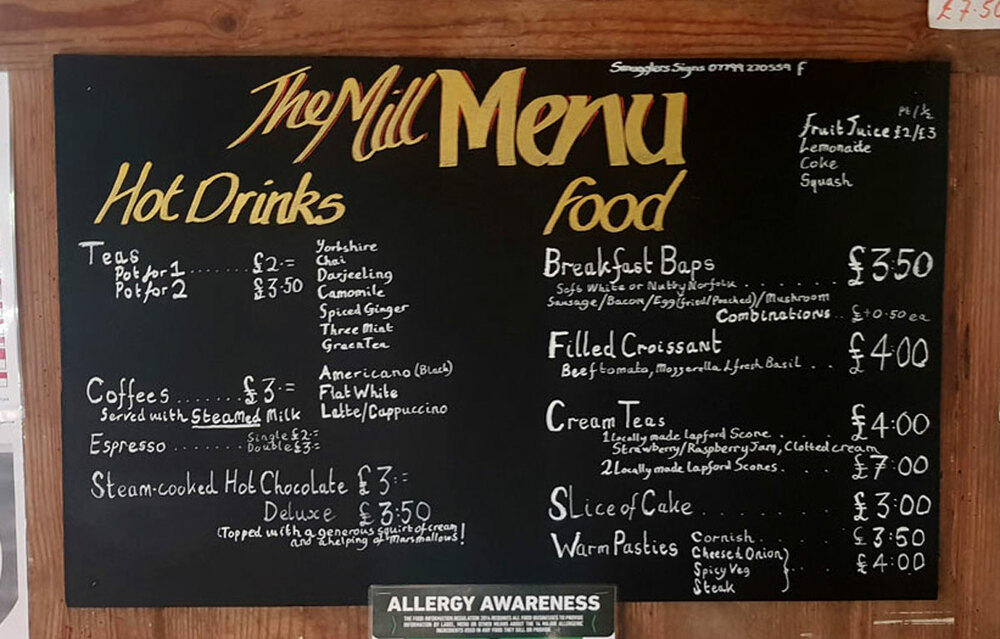 £7.50
Smugglers Signs 07799 270559 f
The Mill Menu
Pt / ½
Fruit Juice £2/£3
Lemonade
Coke
Squash
Hot Drinks
Teas
Pot for 1 ....... £2-=
Pot for 2 £3.50
Yorkshire
Chai
Darjeeling
Camomile
Spiced Ginger
Three Mint
Green Tea
Coffees ....... £3-=
Served with Steamed Milk
Americano (Black)
Flat White
Latte/Cappuccino
Espresso .......... Single £2-=
Double £3-=
Steam-cooked Hot Chocolate £3-=
Deluxe £3.50
(Topped with a generous squirt of cream
and a helping of Marshmallows!
Food
Breakfast Baps £3.50
Soft White or Nutty Norfolk ........
Sausage/Bacon/Egg (Fried/Poached)/Mushroom
Combinations .. £+0.50 ea
Filled Croissant £4.00
Beef tomato, Mozzerella & fresh Basil ...
Cream Teas £4.00
1 Locally made Lapford Scone .....
Strawberry/Raspberry Jam, Clotted cream
2 Locally made Lapford Scones.. £7.00
Slice of Cake .......... £3.00
Warm Pasties Cornish ....... £3.50
Cheese & Onion} ..... £4.00
Spicy Veg
Steak
ALLERGY AWARENESS
THE FOOD INFORMATION REGULATION 2014 REQUIRES ALL FOOD BUSINESSES TO PROVIDE
INFORMATION BY LABEL, MENU OR OTHER MEANS ABOUT THE 14 MAJOR ALLERGENIC
INGREDIENTS USED IN ANY FOOD THEY SELL OR PROVIDE